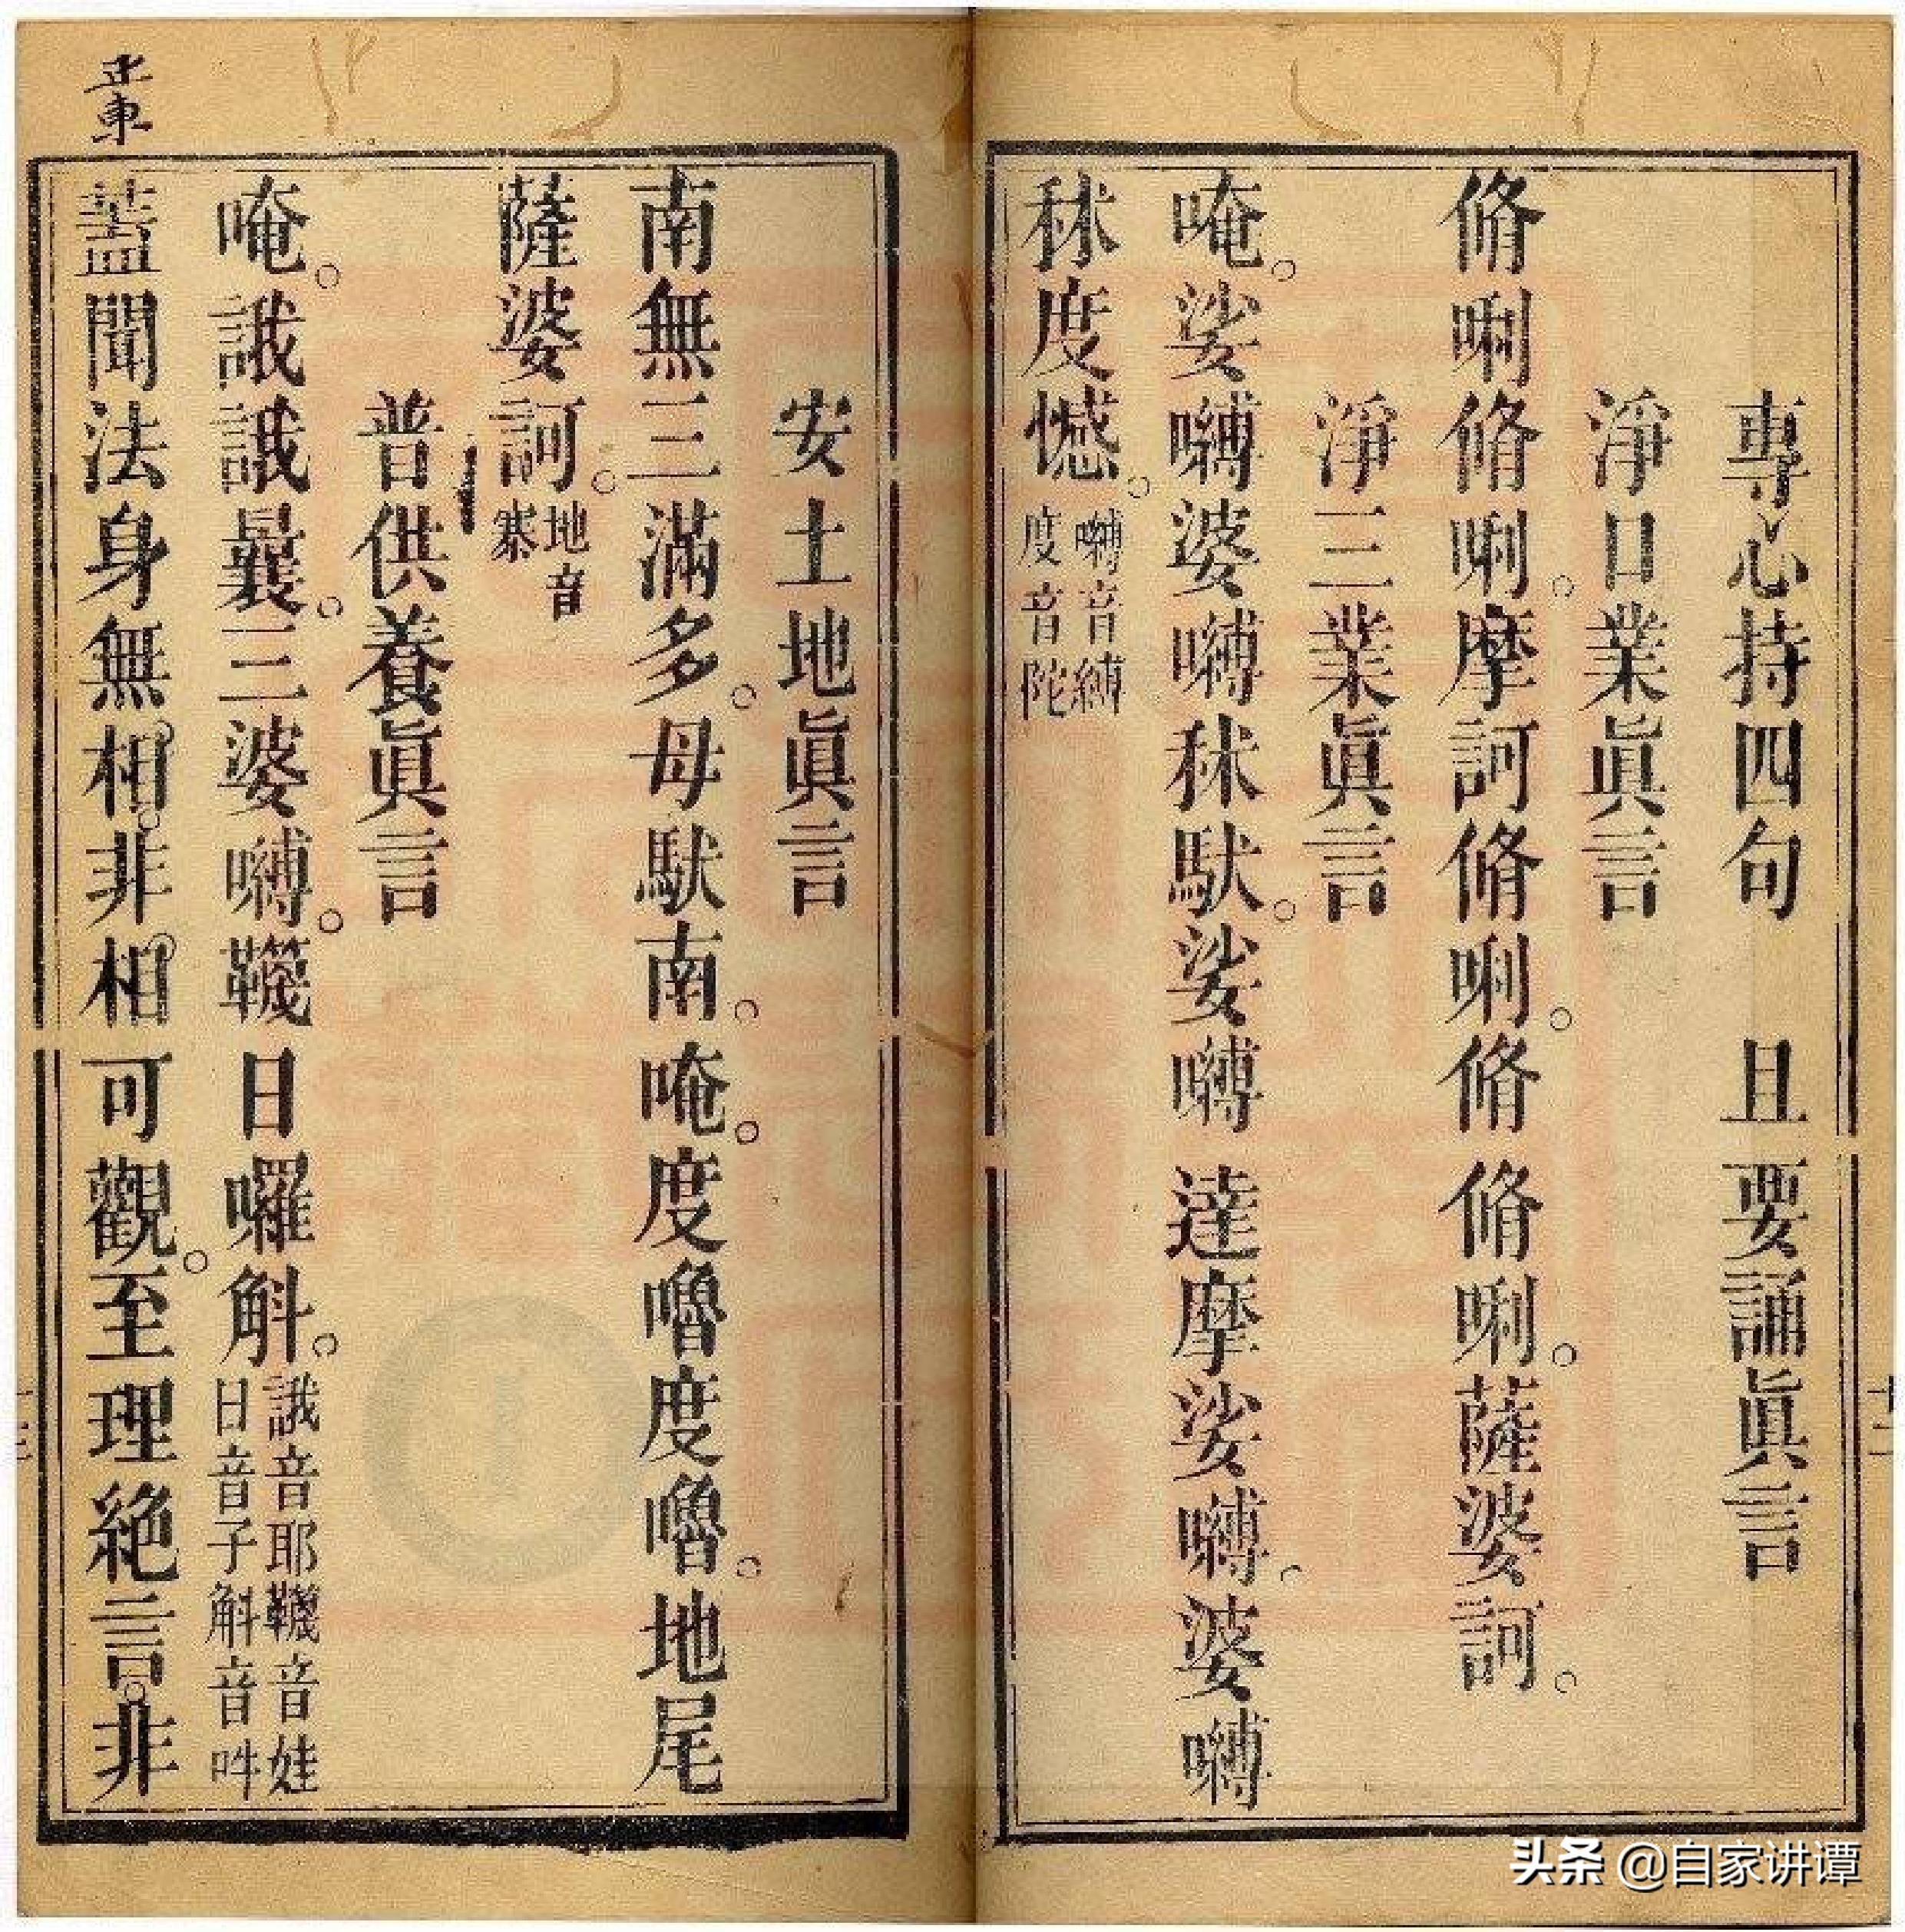 專心持四句　且要誦眞言
淨口業眞言
脩唎脩唎。摩訶脩唎。脩脩唎。薩婆訶。
淨三業眞言
唵。娑嚩婆嚩秫馱。娑嚩達摩娑嚩。婆嚩
秫度憾。嚩音縛度音陀
安土地眞言
南無三滿多。母馱南。唵。度嚕度嚕。地尾
薩婆訶。地音寨
普供養眞言
唵。誐誐曩。三婆嚩。韈日囉斛。誐音耶韈音娃日音子斛音吽
葢聞法身無相。非相。相可觀。至理絕言。非
十二
頭条 @自家讲谭